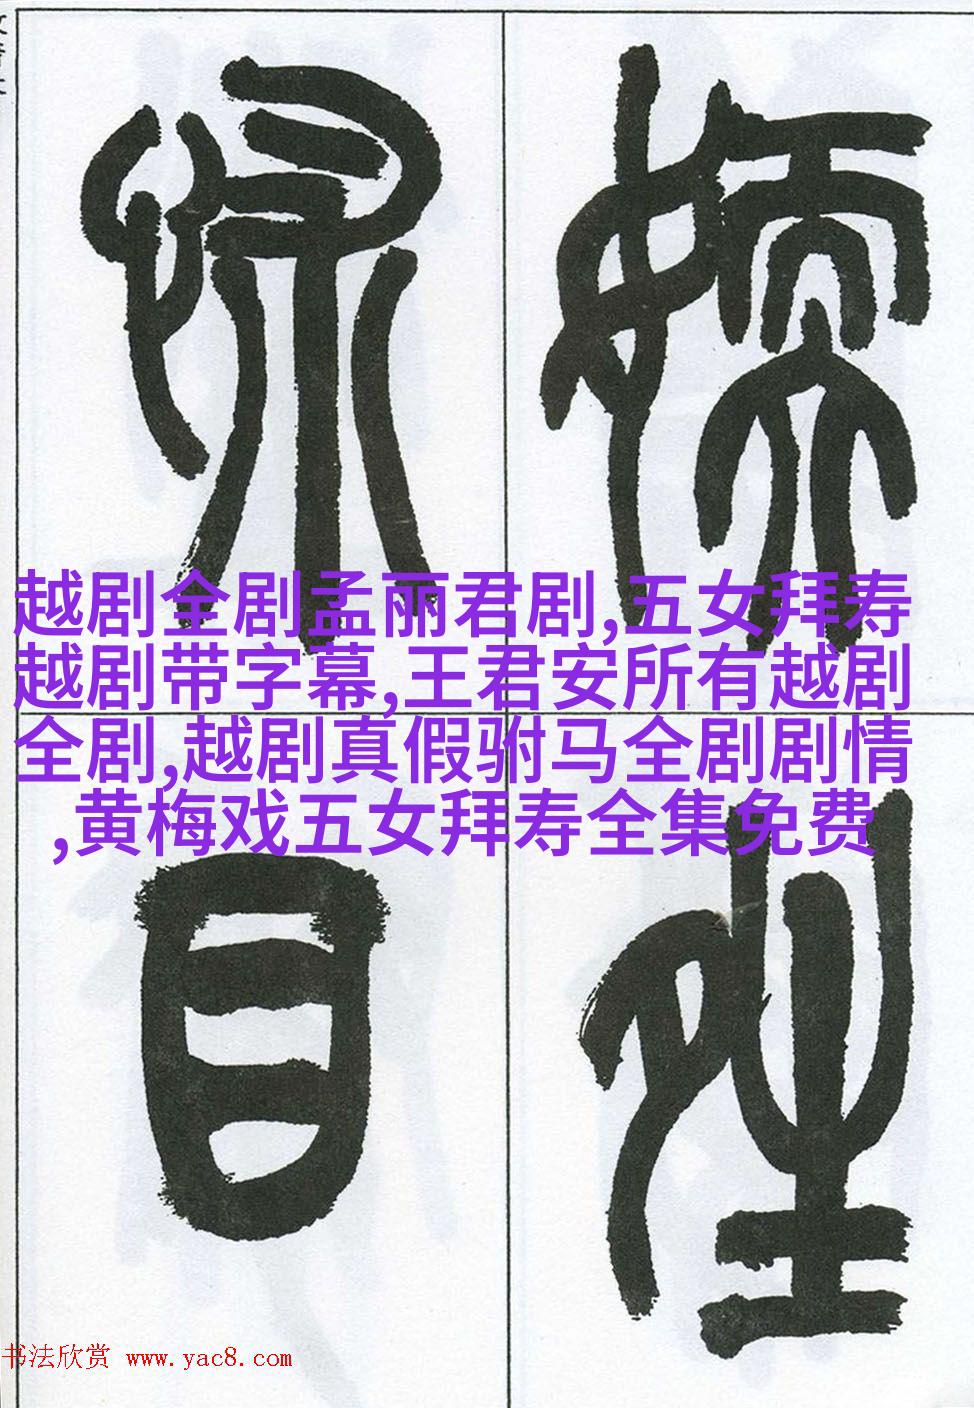 越剧全剧孟丽君剧,五女拜寿
越剧带字幕,王君安所有越剧
全剧,越剧真假驸马全剧剧情
,黄梅戏五女拜寿全集免费
目
书法欣赏 www.yac8.com